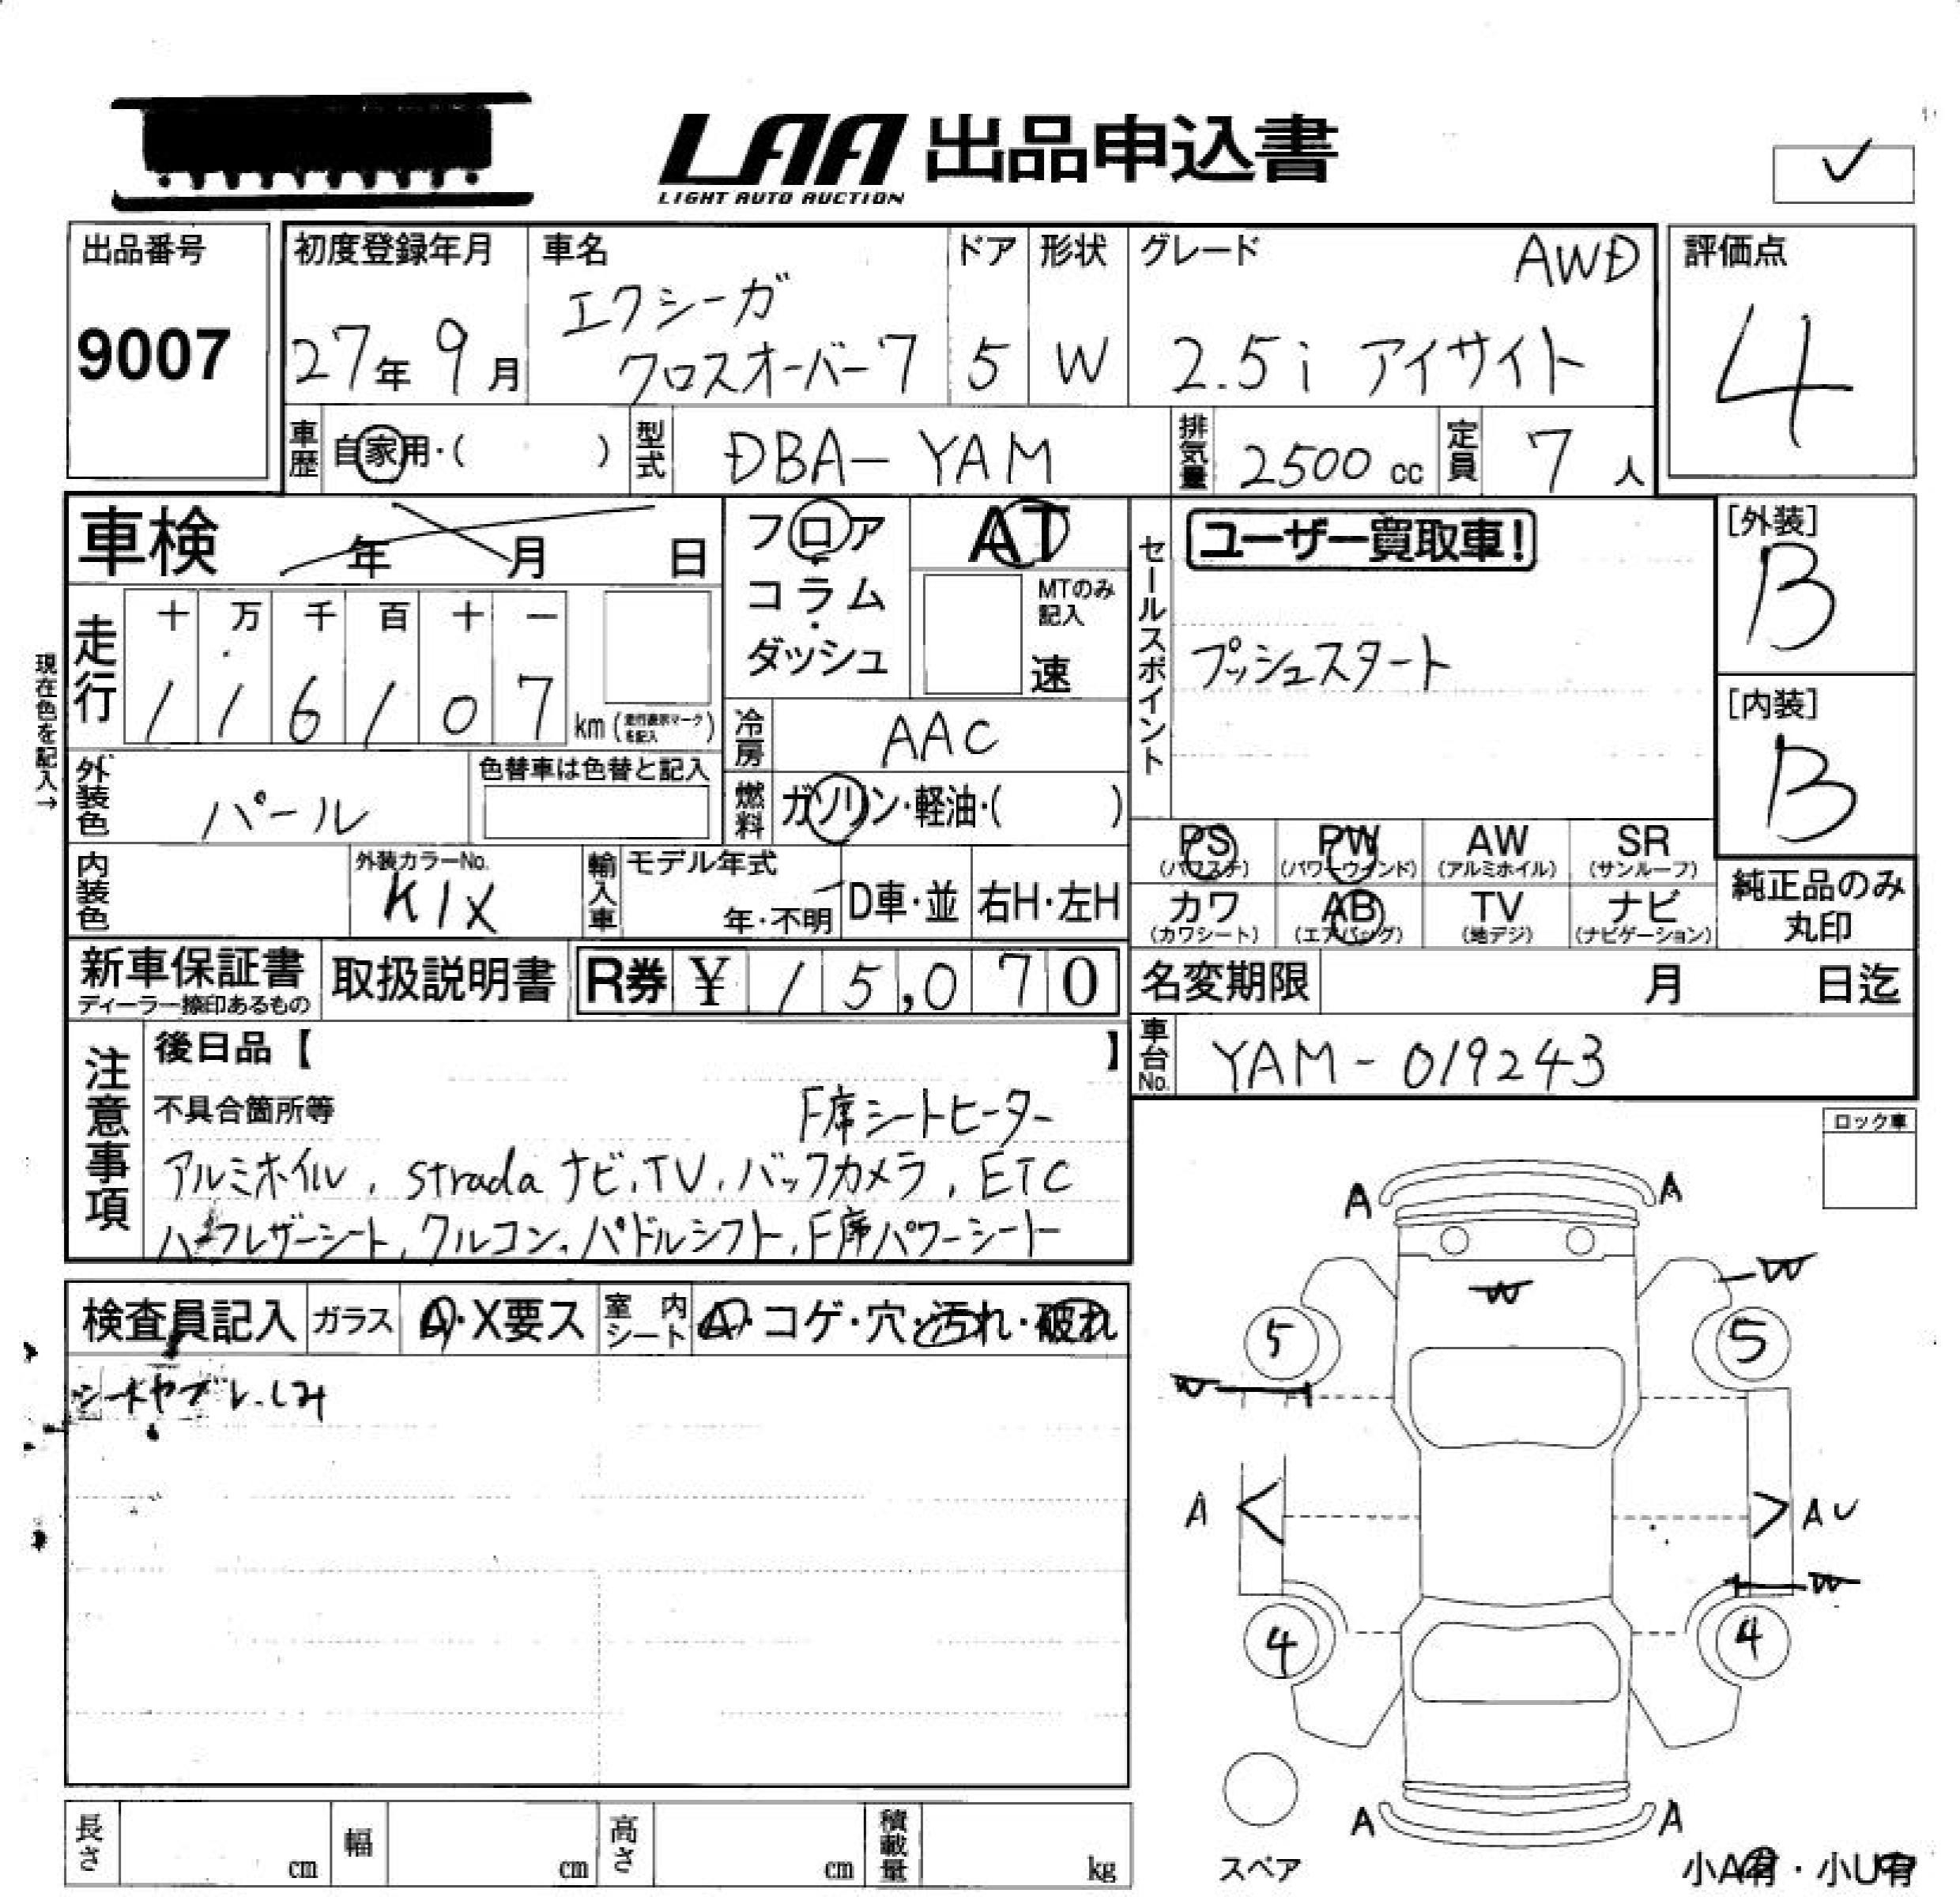 LAA 出品申込書
LIGHT AUTO AUCTION
✓
出品番号
9007
初度登録年月
27年 9月
車名
エクシーガ
クロスオーバー7
ドア
5
形状
W
グレード
AWD
2.5i アイサイト
評価点
4
車歴
自家用・( )
型式
DBA-YAM
排気量
2500 cc
定員
7 人
車検 年 月 日
フロア
・
コラム
・
ダッシュ
AT
MTのみ
記入
速
セールスポイント
ユーザー買取車!
プッシュスタート
[外装]
B
[内装]
B
現在色を記入→
走行
十 万 千 百 十 一
1 1 6 1 0 7
km (走行表示マークを記入)
冷房
AAC
外装色
パール
色替車は色替と記入
燃料
ガソリン・軽油・( )
PS
(パワステ)
PW
(パワーウインド)
AW
(アルミホイル)
SR
(サンルーフ)
カワ
(カワシート)
AB
(エアバッグ)
TV
(地デジ)
ナビ
(ナビゲーション)
純正品のみ
丸印
内装色
外装カラーNo.
K1X
輸入車
モデル年式
年・不明
D車・並
右H・左H
新車保証書
ディーラー捺印あるもの
取扱説明書
R券 ¥ 15,070
名変期限
月 日迄
車台No.
YAM-019243
注意事項
後日品【 】
不具合箇所等
F席シートヒーター
アルミホイル, strada ナビ, TV, バックカメラ, ETC
ハーフレザーシート, クルコン, パドルシフト, F席パワーシート
ロック車
検査員記入
ガラス
A・X要ス
室内シート
A・コゲ・穴・汚れ・破れ
シートヤブレ.
A A
W
W
5 5
W
A
A U
W
4 4
A A
スペア
小A有・小U有
長さ cm
幅 cm
高さ cm
積載量 kg